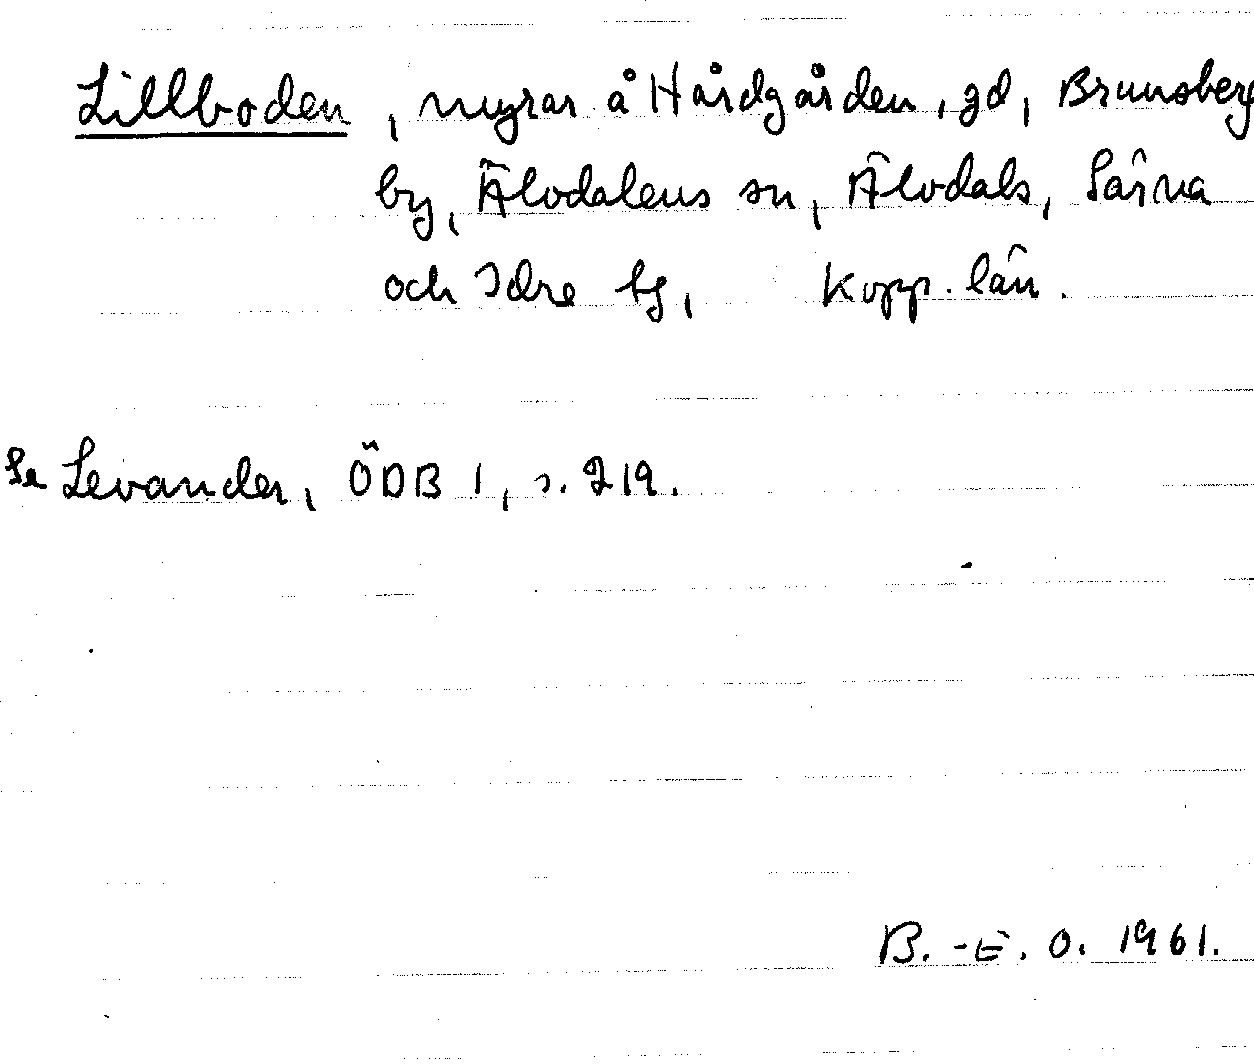 Lillboden, myrar å Hårdgården, gd, Brunsberg
by, Älvdalens sn, Älvdals, Särna
och Idre tg, Kopp. län.
Se Levander, ÖDB 1, s. 219.
B.-E. O. 1961.